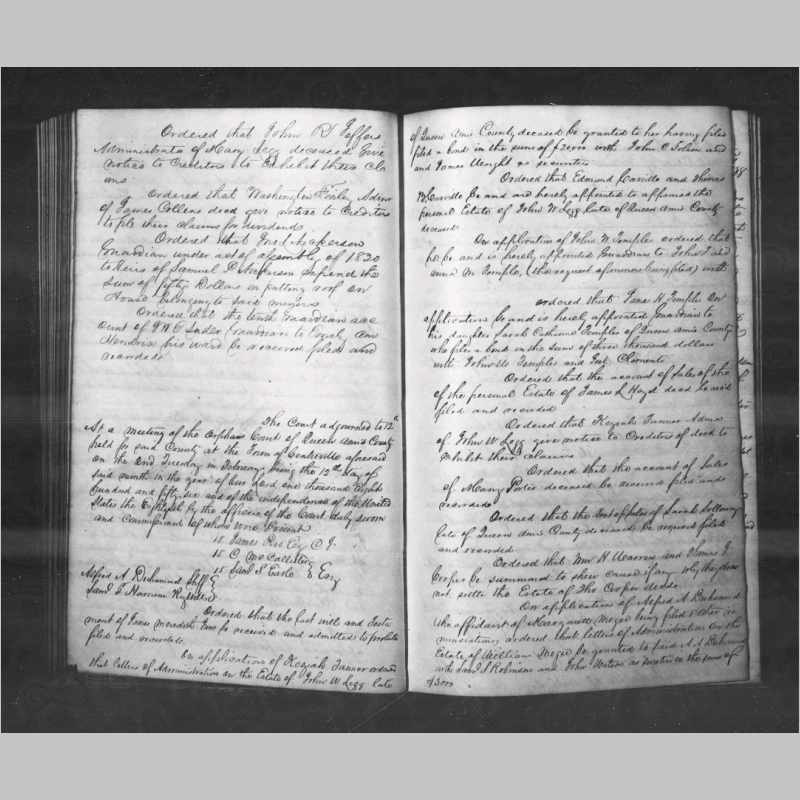 Ordered that John R Jeffers
Administrator of Mary Legg deceased Give
notice to Creditors to Exhibit their Cla
ims
Ordered that Washington Finley Admr
of James Collens decd give notice to Creditors
to file their claims for dividends
Ordered that
Guardian under act of assembly of 1820
to Heirs of Samuel D. expend the
Sum of fifty Dollars in putting roof on
House belonging to said minors
Ordered that the tenth Guardian acc
ount of Guardian to Emily Ann
his ward be received filed and
recorded
The Court adjourned to 12th
At a meeting of the Orphans Court of Queen Anns County
held for said County at the Town of Centreville aforesaid
on the 2nd Tuesday in February being the 12th day of
said month in the year of our Lord one thousand Eight
hundred and fifty six and of the independence of the United
States the Eightieth by the officers of the Court duly sworn
and commissioned of whom were Present
James
C McCallister
Saml T Earle Esq
Alfred A Dickmund Shff
Saml T Harrison Register
Ordered that the last will and Testa
ment of Meredith be received and admitted to probate
filed and recorded
On application of Keziah Turner ordered
that letters of Administration on the Estate of John W Legg late
of Queen Anns County deceased be granted to her having filed
filed a bond in the sum of $2000 with John C and
and James Wright as securities
Ordered that Edmund Carville and Thomas
Carville be and are hereby appointed to appraise the
personal Estate of John W Legg late of Queen Anns County
deceased
On application of John W Temple ordered that
he be and is hereby appointed Guardian to John T and
Temple, (the request aforesaid Excepted) with
ordered that James H Temple on
application be and is hereby appointed Guardian to
his daughter Sarah Catharine Temple of Queen Anns County
who files a bond in the sum of three thousand dollars
with John W Temple and Clements
Ordered that the account of Sales of the
of the personal Estate of James R decd be recd
filed and recorded
Ordered that Keziah Turner Admx
of John W Legg give notice to Creditors of decd to
exhibit their claims
Ordered that the account of Sales
of Mary Porter deceased be received filed and
recorded
Ordered that the list of debts of Sarah
late of Queen Anns County deceased be received filed
and recorded
Ordered that Wm H and Thomas J
Cooper be summoned to show cause if any why they does
not settle the Estate of Tho Cooper decd
On application of Alfred A Dickmund
the affidavit of Margarett being filed &
ordered that letters of Administration on the
Estate of William be granted to said A A Dickmund
with Robinson and John Watson as sureties in the sum of
$3000